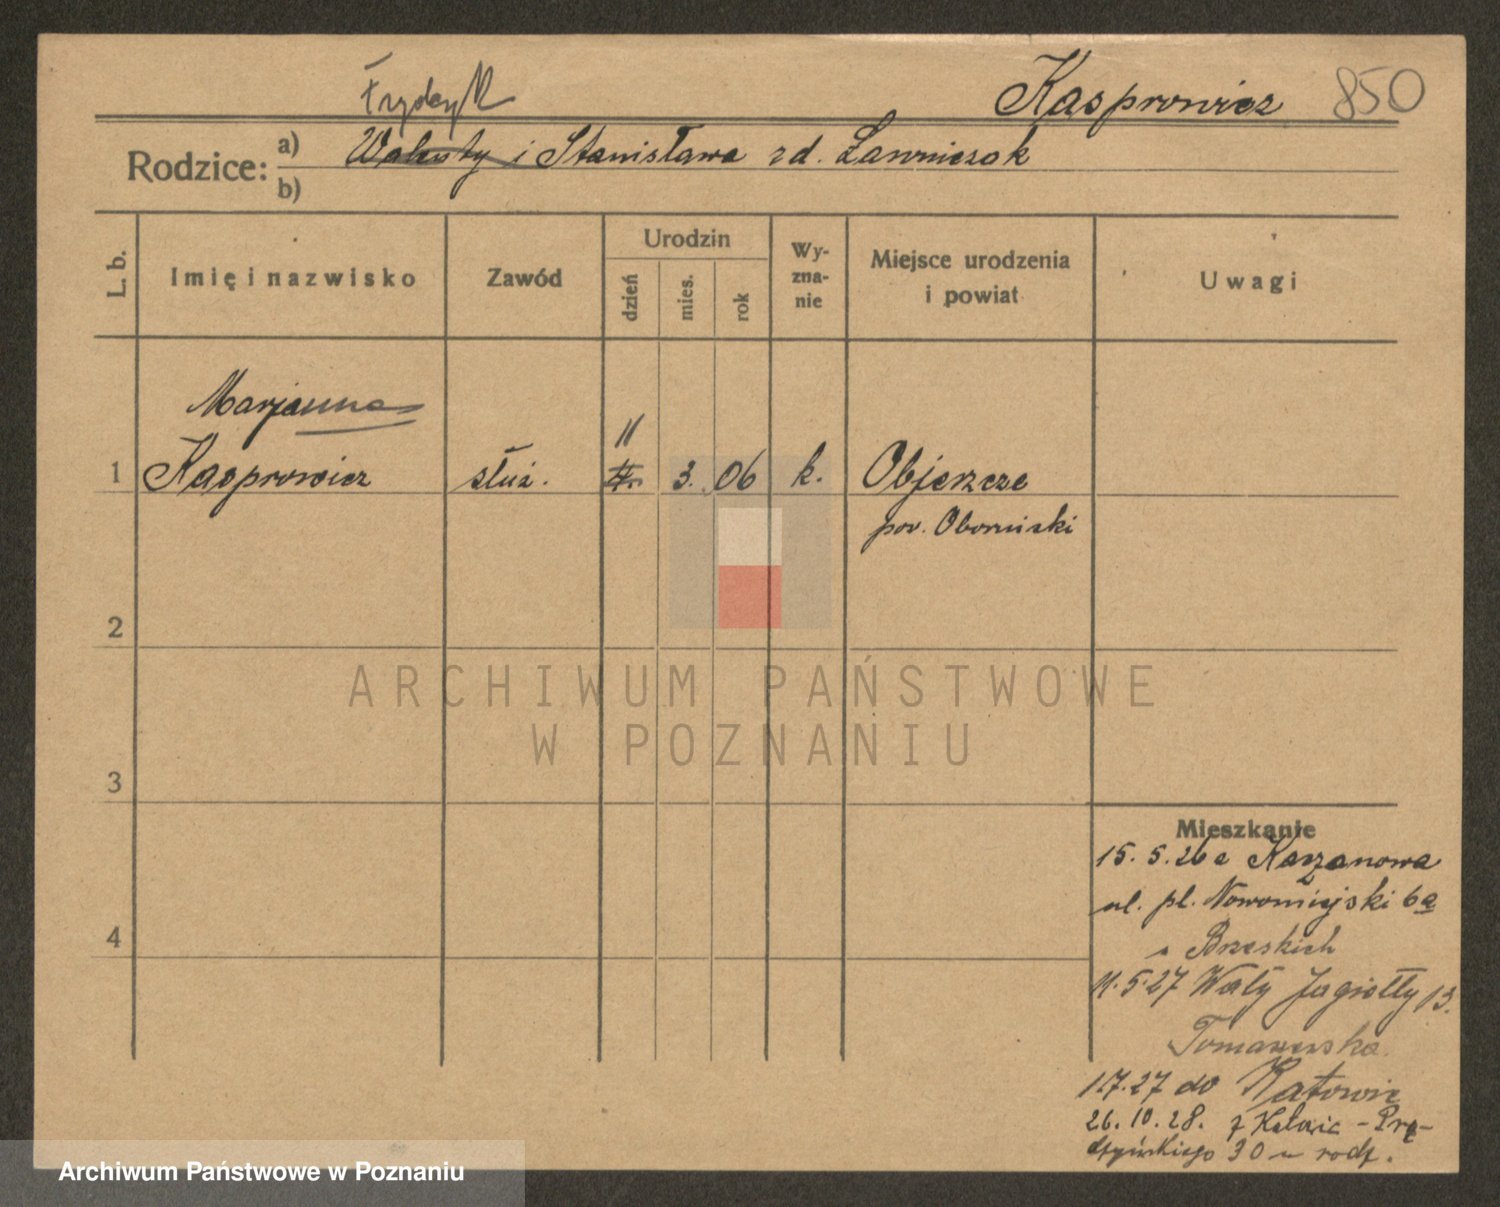 Kasprowicz 850
Fryderyk
Rodzice: a) Walenty i Stanisława zd. Ławniczak
b)
L. b. Imię i nazwisko Zawód Urodzin dzień mies. rok Wy-zna-nie Miejsce urodzenia i powiat Uwagi
Marjanna
11
1 Kasprowicz służ. 3. 06 k. Objezcze
pow. Obornicki
2
ARCHIWUM PAŃSTWOWE
W POZNANIU
3
Mieszkanie
15. 5. 26 z
ul. pl. Nowomiejski 6a
u Brzeskich
4
11.5.27 Wały Jagiełły 13.
Tomaszewska
1.7.27 do Katowic
26. 10. 28. z Katowic - Prą-
dzyńskiego 30 u rodz.
Archiwum Państwowe w Poznaniu